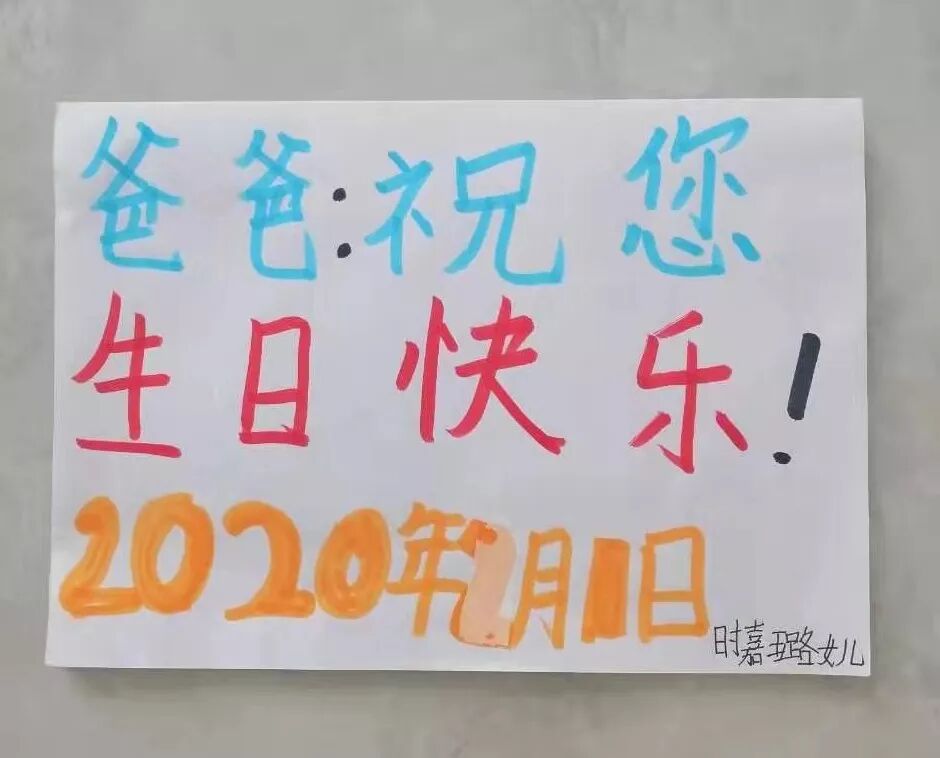 爸爸:祝您
生日快乐!
2020年2月1日
时嘉璐女儿